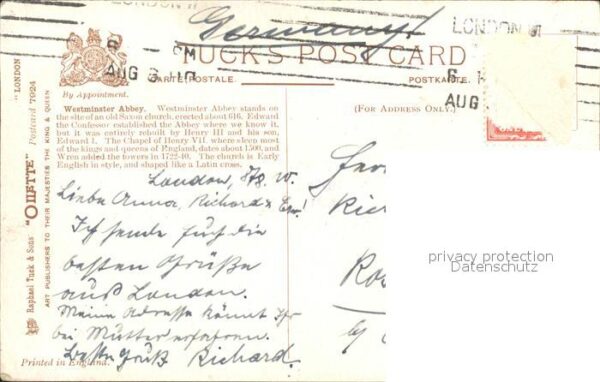 LONDON W
Germany!
LONDON W
TUCK'S POST CARD
6 PM
AUG 3 10
6 1
AUG
CARTE POSTALE.
POSTKARTE.
By Appointment.
(FOR ADDRESS ONLY.)
Westminster Abbey. Westminster Abbey stands on
the site of an old Saxon church, erected about 616. Edward
the Confessor established the Abbey where we know it,
but it was entirely rebuilt by Henry III and his son,
Edward I. The Chapel of Henry VII. where sleep most
of the kings and queens of England, dates about 1,500, and
Wren added the towers in 1722-40. The church is Early
English in style, and shaped like a Latin cross.
London, 8/8. W.
Liebe Anna, Richard &
Ich sende Euch die
besten Grüße
aus London.
Meine Adresse könnt Ihr
bei Mutter erfahren.
Besten Gruß Richard.
Printed in England.
Raphael Tuck & Sons' "OILETTE" Postcard 7024 "LONDON"
ART PUBLISHERS TO THEIR MAJESTIES THE KING & QUEEN
privacy protection
Datenschutz